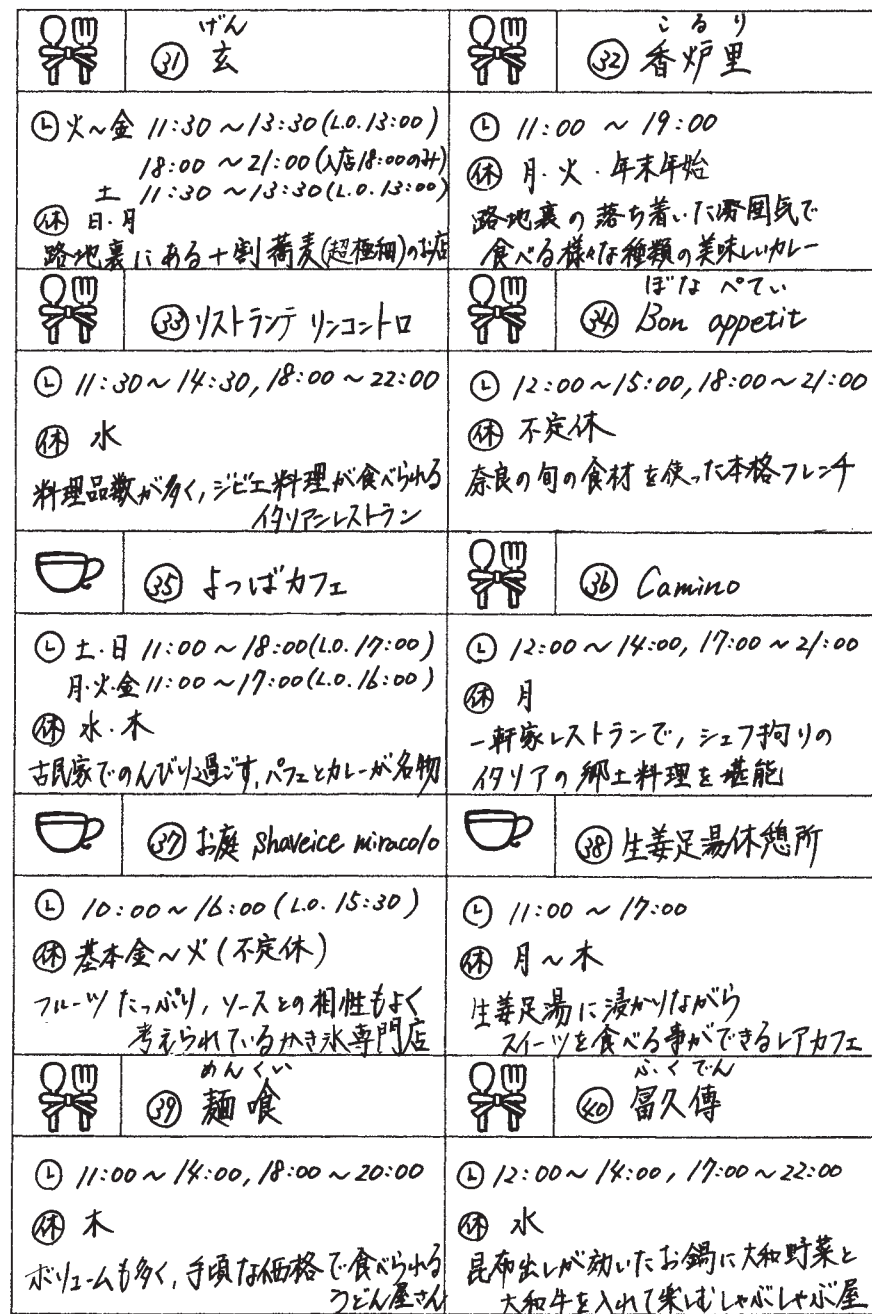 げん
㉛ 玄
🕒火~金 11:30 ~13:30(L.O.13:00)
18:00 ~21:00(入店18:00のみ)
土 11:30 ~13:30(L.O.13:00)
㊡ 日・月
路地裏にある十割蕎麦(超極細)のお店
こるり
㉜ 香炉里
🕒 11:00 ~ 19:00
㊡ 月・火・年末年始
路地裏の落ち着いた雰囲気で
食べる様々な種類の美味しいカレー
㉝ リストランテ リンコントロ
🕒 11:30~14:30, 18:00~22:00
㊡ 水
料理品数が多く, ジビエ料理が食べられる
イタリアンレストラン
ぼなぺてぃ
㉞ Bon appetit
🕒 12:00~15:00, 18:00~21:00
㊡ 不定休
奈良の旬の食材を使った本格フレンチ
㉟ よつばカフェ
🕒 土・日 11:00 ~18:00(L.O.17:00)
月・火・金 11:00 ~17:00(L.O.16:00)
㊡ 水・木
古民家でのんびり過ごす, パフェとカレーが名物
㊱ Camino
🕒 12:00~14:00, 17:00~21:00
㊡ 月
一軒家レストランで, シェフ拘りの
イタリアの郷土料理を堪能
㊲ お庭 shaveice miracolo
🕒 10:00~16:00 (L.O. 15:30)
㊡ 基本金~火 (不定休)
フルーツたっぷり, ソースとの相性もよく
考えられているかき氷専門店
㊳ 生姜足湯休憩所
🕒 11:00 ~ 17:00
㊡ 月~木
生姜足湯に浸かりながら
スイーツを食べる事ができるレアカフェ
めんくい
㊴ 麺喰
🕒 11:00~14:00, 18:00~20:00
㊡ 木
ボリュームも多く, 手頃な価格で食べられる
うどん屋さん
ふくでん
㊵ 冨久傳
🕒 12:00~14:00, 17:00~22:00
㊡ 水
昆布出しが効いたお鍋に大和野菜と
大和牛を入れて楽しむしゃぶしゃぶ屋